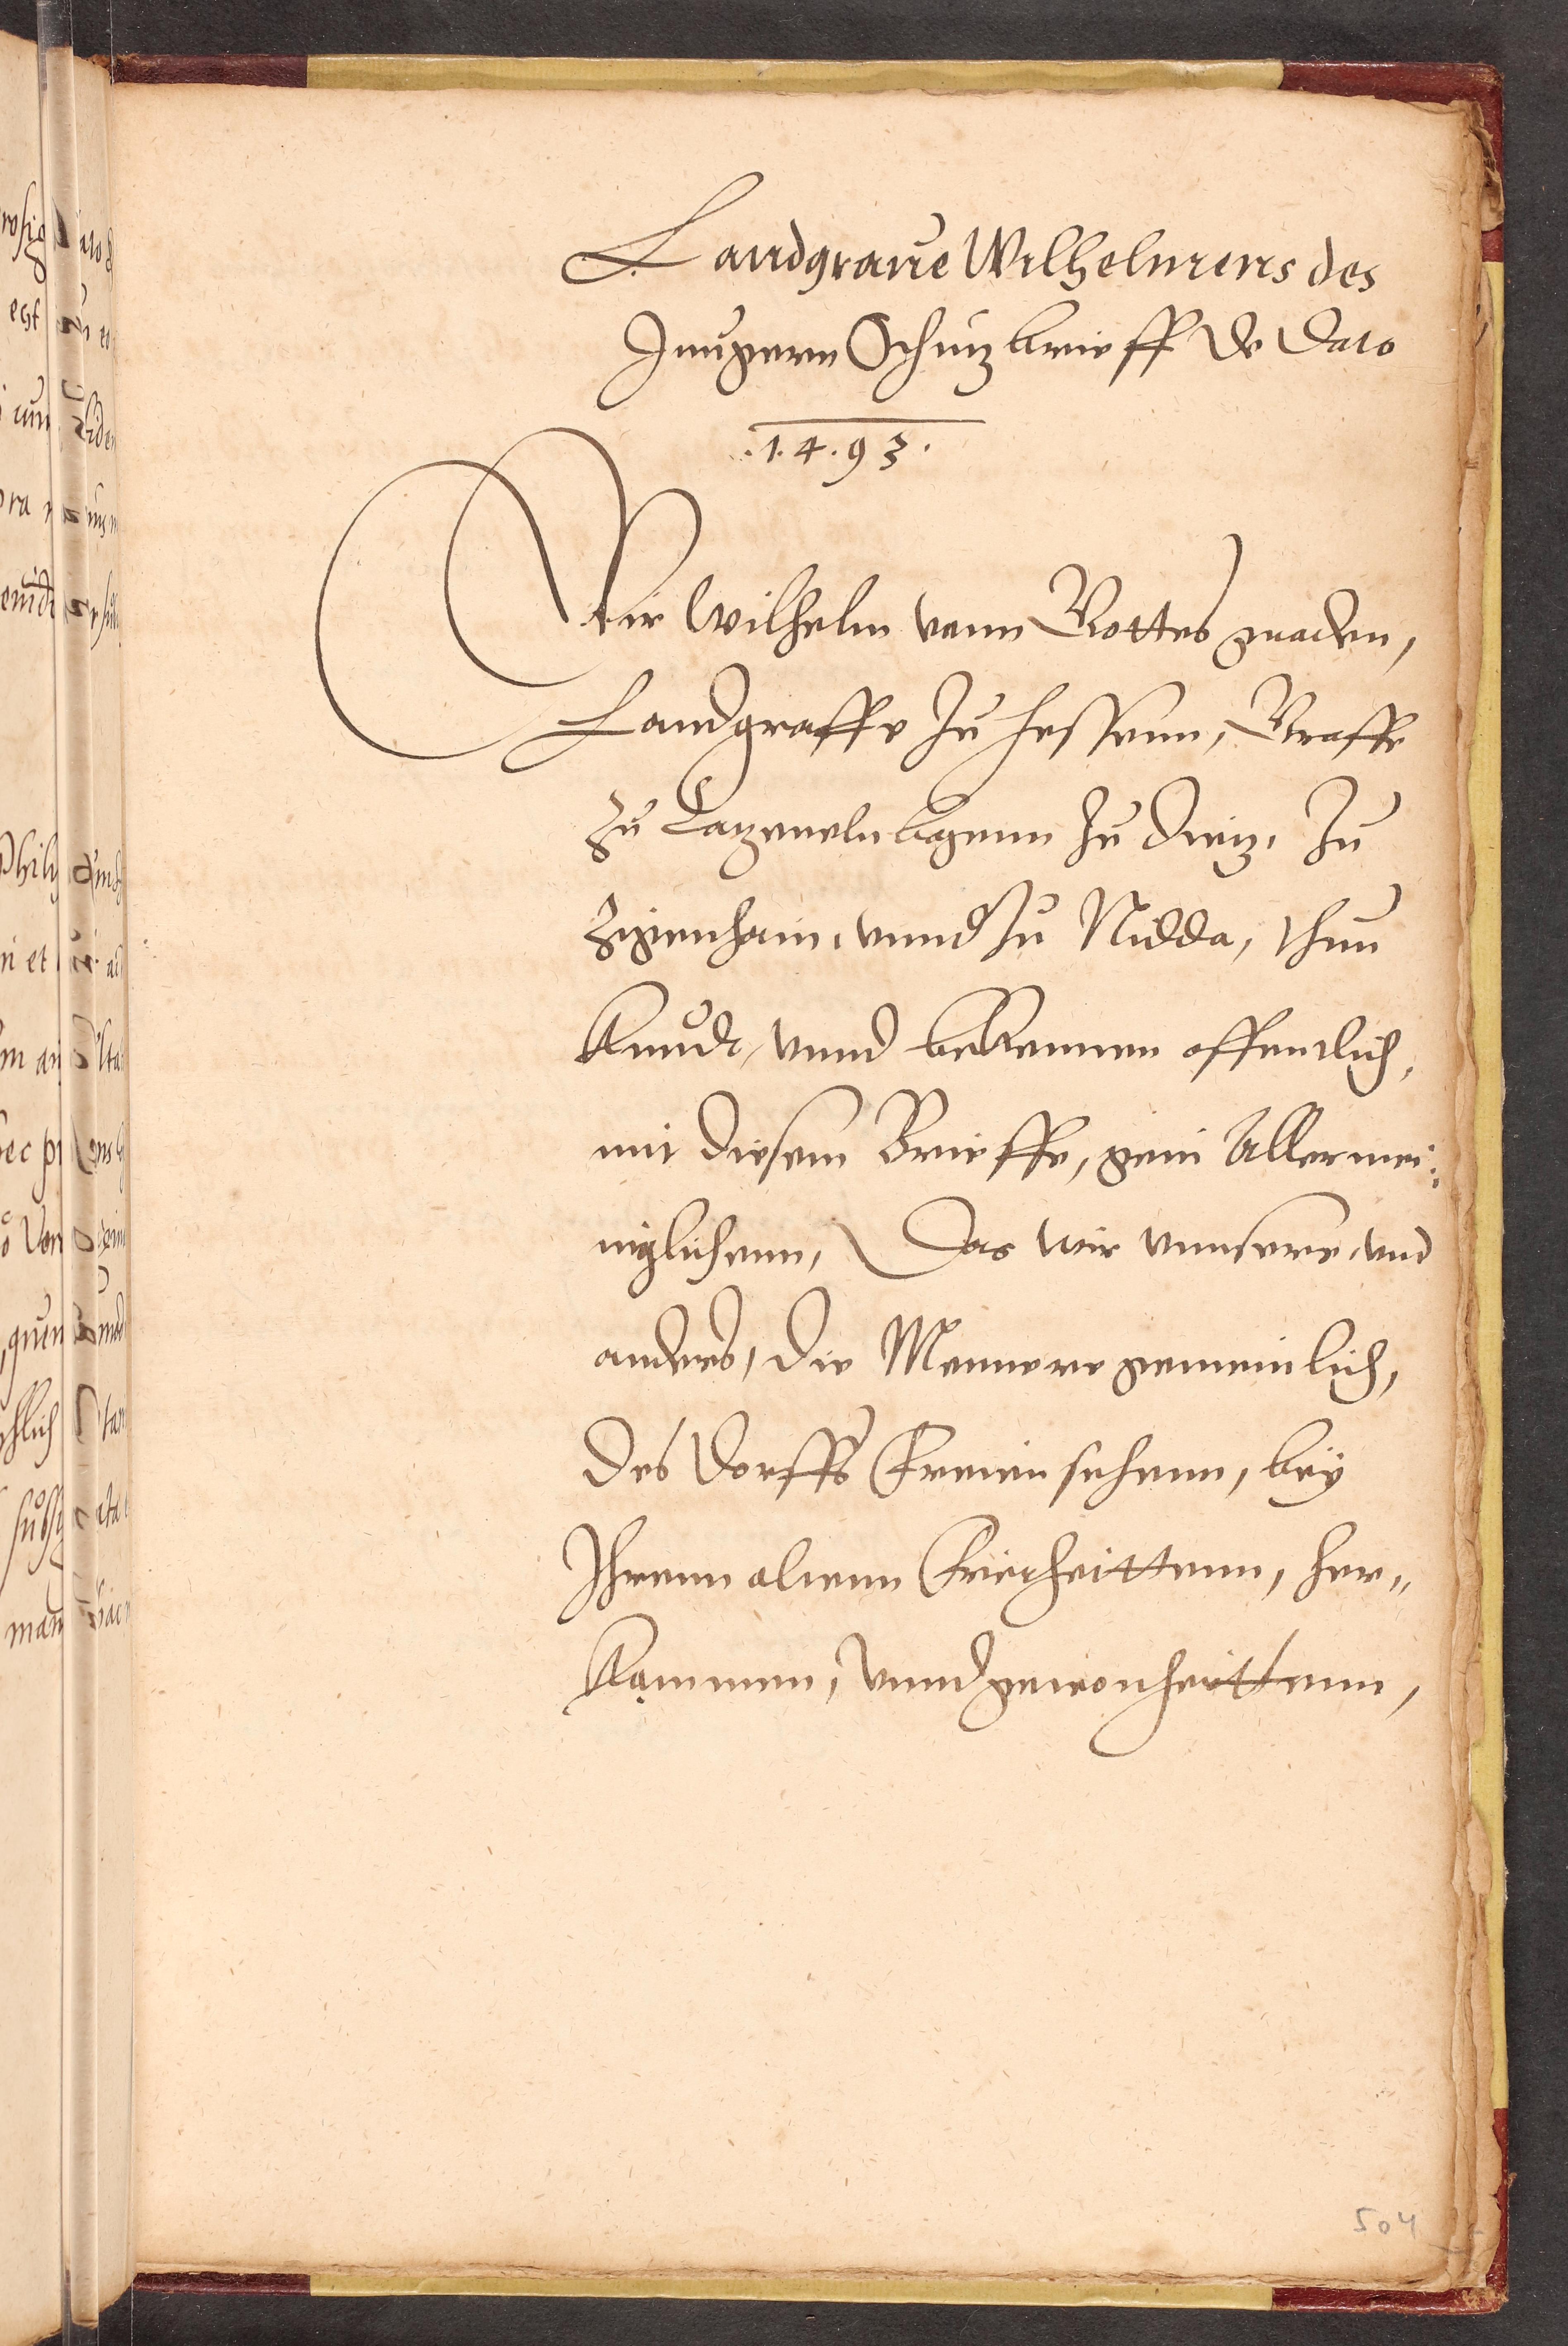 Landgraue Wilhelmens des
Jungern Schutzbrieff De Dato
.1.4.93.
Wir Wilhelm vonn Gottes gnaden,
Landgraffe zu hessenn, Graffe
zu Catzenelnbogenn zu Dietz, zu
Zigenhain, vnnd zu Nidda, thun
kundt, vnnd bekennen offentlich,
mit diesem Brieffe, gein Allermei:
niglichenn, Das wir vnnsere, vnd
anders, die Mennere gemeinlich,
des Dorffs Freiensehenn, bey
Ihrenn altenn Frierheittenn, her„
kommen, vnnd gewonheittenn,
504